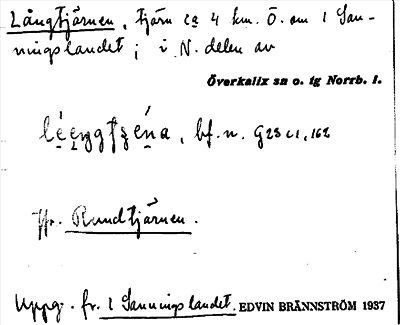 Långtjärnen, tjärn ca 4 km. Ö. om 1 San-
ningslandet; i N. delen av
Överkalix sn o. tg Norrb. l.
bf. n. G23 c1, 162
Jfr. Rundtjärnen.
Uppg. fr. 1 Sanningslandet. EDVIN BRÄNNSTRÖM 1937